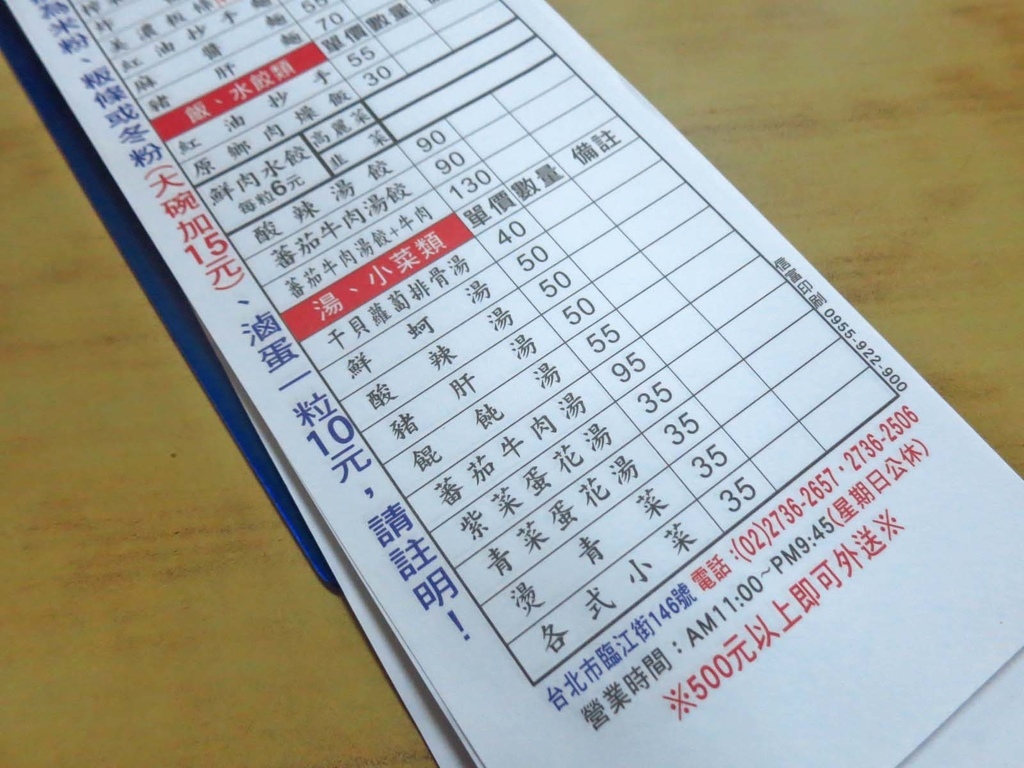 紅油抄手麵 55
麻醬麵
豬肝麵 70
飯、水餃類 單價 數量
紅油抄手 55
原鄉肉燥飯 30
鮮肉水餃 每粒6元 高麗菜
韭菜
酸辣湯餃 90
蕃茄牛肉湯餃 90
蕃茄牛肉湯餃+牛肉 130
湯、小菜類 單價 數量 備註
干貝蘿蔔排骨湯 40
鮮蚵湯 50
酸辣湯 50
豬肝湯 50
餛飩湯 55
蕃茄牛肉湯 95
紫菜蛋花湯 35
青菜蛋花湯 35
燙青菜 35
各式小菜 35
為米粉、粄條或冬粉(大碗加15元)、滷蛋一粒10元，請註明！
信富印刷 0955-922-900
台北市臨江街146號 電話:(02)2736-2657·2736-2506
營業時間：AM11:00~PM9:45(星期日公休)
※500元以上即可外送※